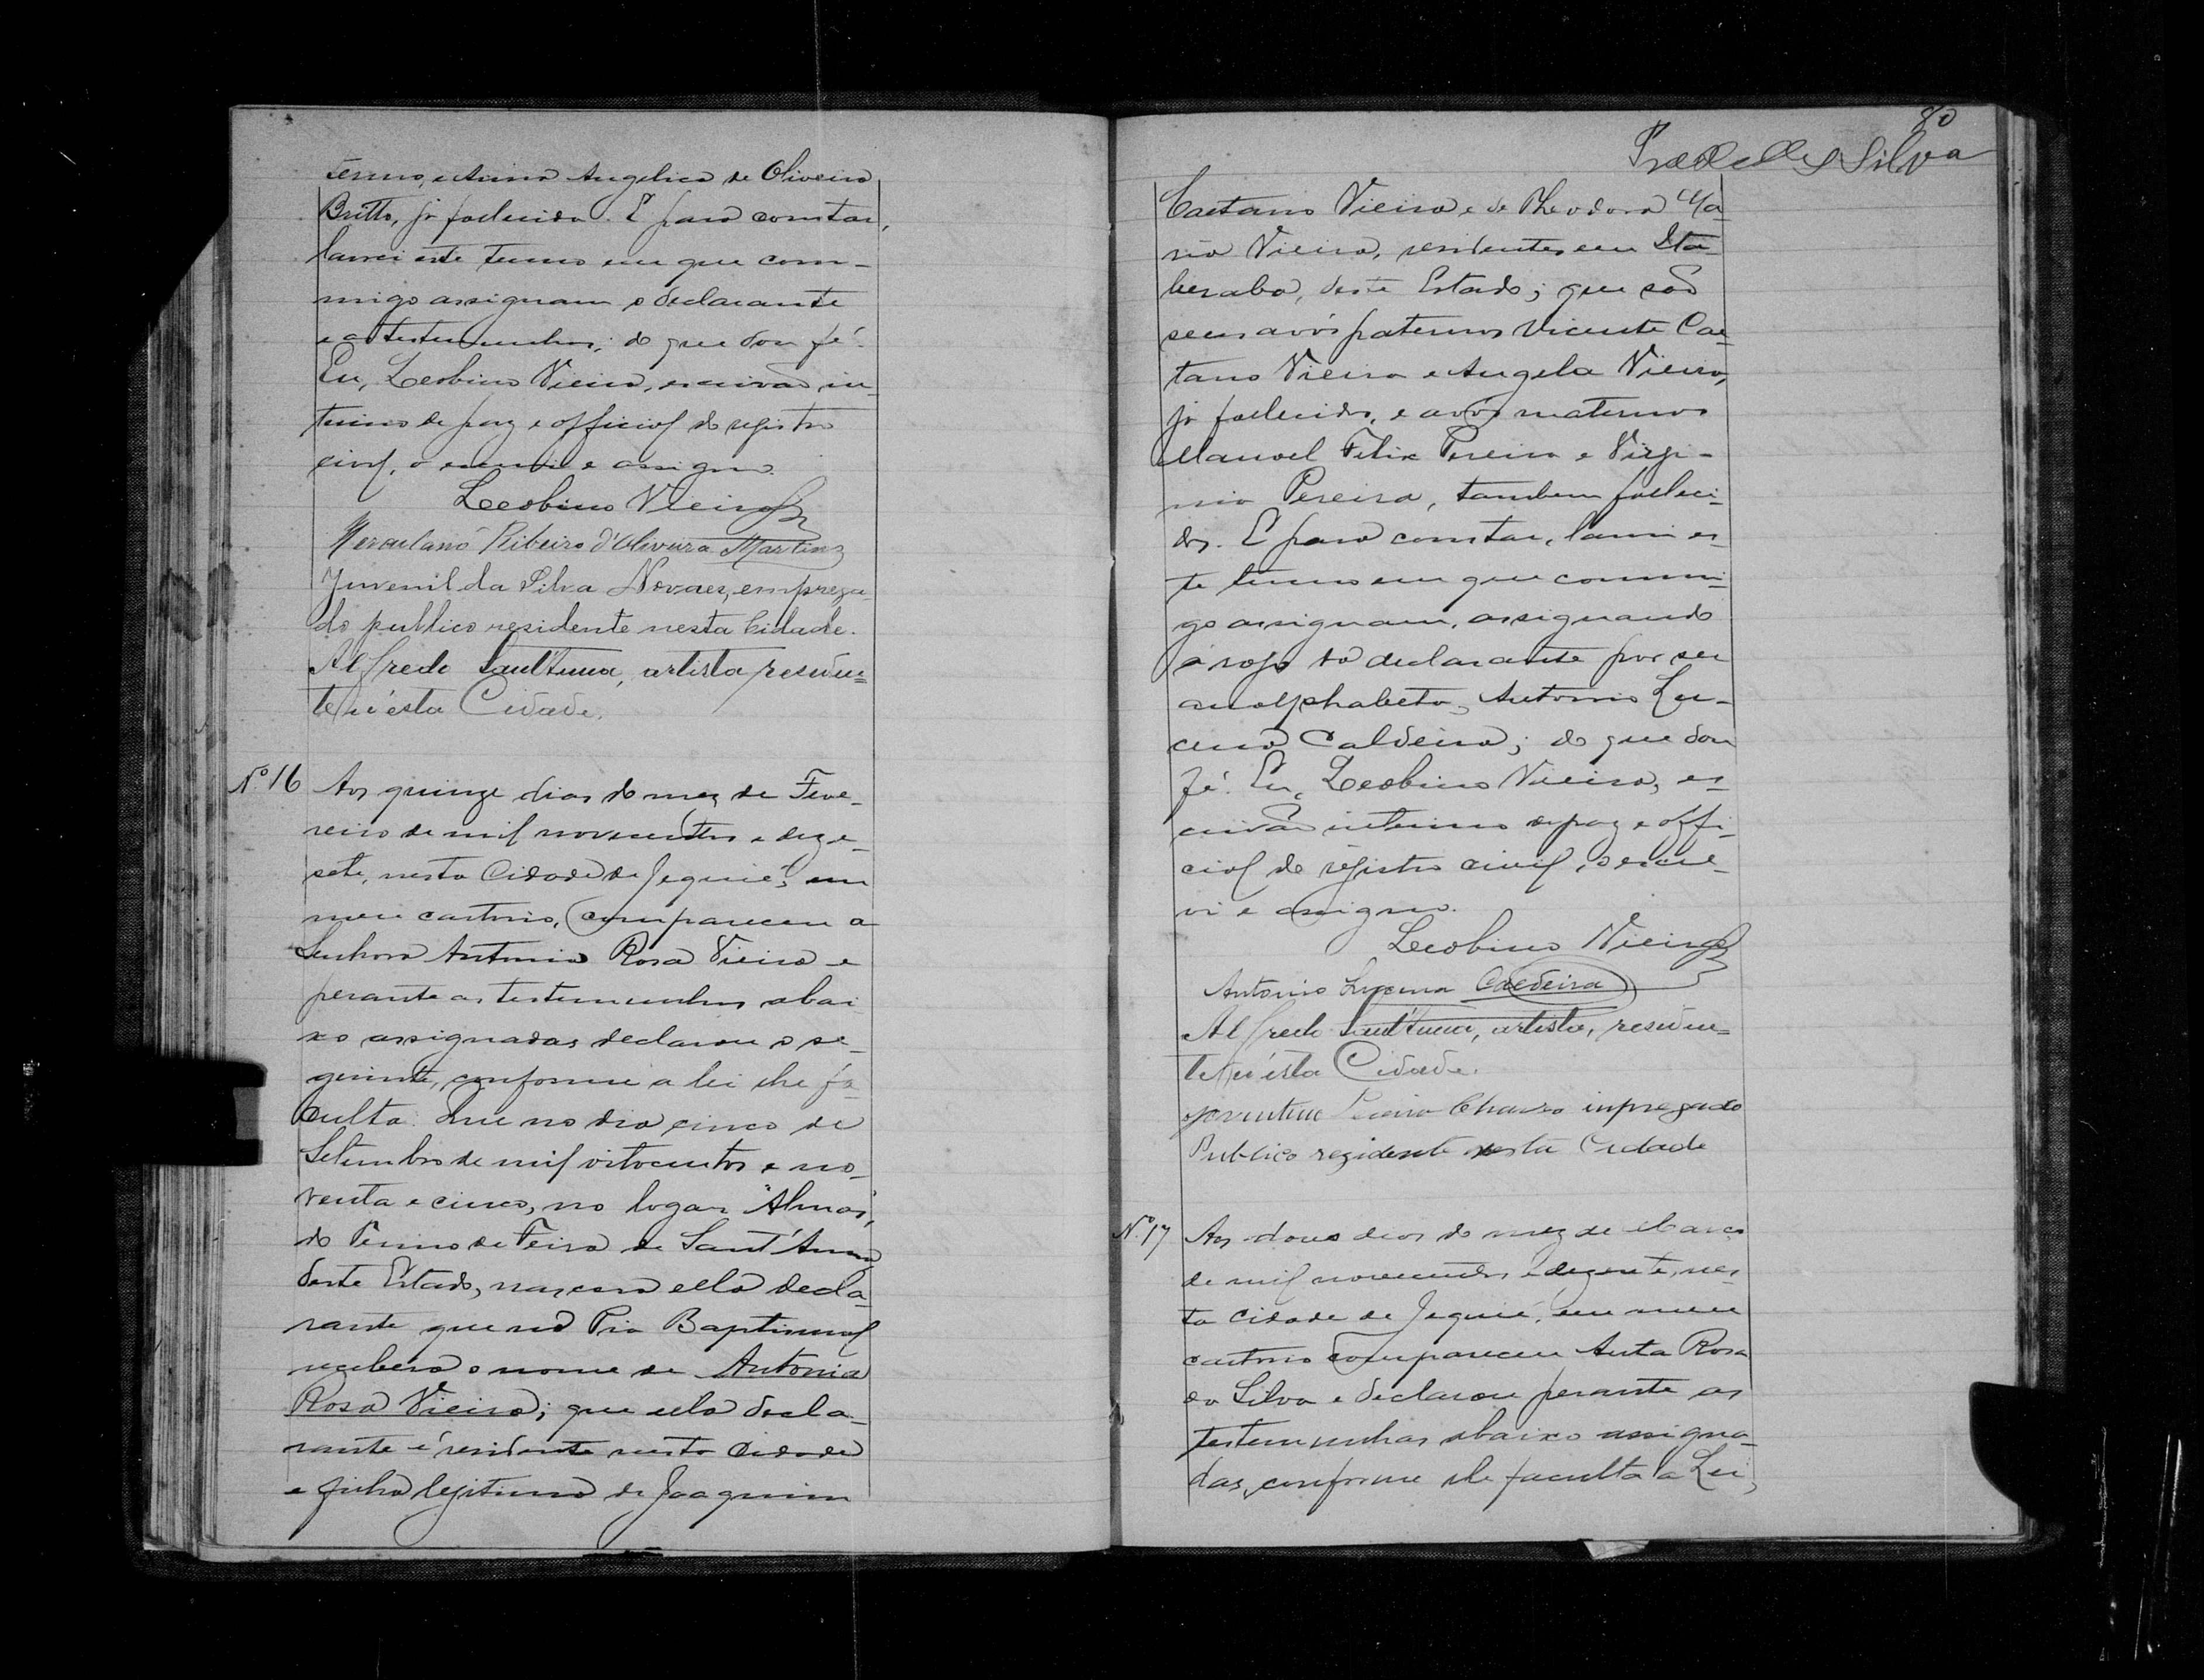 termo, e Anna Angelica de Oliveira
Britto, já fallecida. E para constar,
lavrei este termo em que com-
migo assignam o declarante
e as testemunhas; do que dou fé.
Eu, Leobino Vieira, escrivão in-
terino de paz e official do registro
civil, o escrevi e assigno.
Leobino Vieira
Herculano Ribeiro d'Oliveira Martins
Juvenil da Silva Novaes, emprega-
do publico residente nesta Cidade.
Alfredo Sant'Anna, artista, residen=
te n'esta Cidade.
Nº 16 Aos quinze dias do mez de Feve-
reiro de mil novecentos e deze-
sete, nesta Cidade de Jequié, em
meu cartorio, compareceu a
Senhora Antonia Rosa Vieira e
perante as testemunhas abai
xo assignadas declarou o se-
guinte, conforme a lei lhe fa-
culta: Que no dia cinco de
Setembro de mil oitocentos e no-
venta e cinco, no logar "Almas",
do Termo de Feira de Sant'Anna
deste Estado, nascera ella decla-
rante que na Pia Baptismal
recebera o nome de Antonia
Rosa Vieira; que ella decla-
rante é residente nesta Cidade
e filha legitima de Joaquim
80
Silva
Caetano Vieira e de Theodora Ma-
ria Vieira, residentes em Ita-
beraba, deste Estado; que são
seus avós paternos Vicente Cae-
tano Vieira e Angela Vieira,
já fallecidos, e avós maternos
Manoel Felix Pereira e Virgi-
nia Pereira, tambem falleci-
dos. E para constar, lavrei es-
te termo em que commi-
go assignam, assignando
a rogo da declarante por ser
analphabeta, Antonio Lu-
cena Caldeira; do que dou
fé. Eu, Leobino Vieira, es-
crivão interino de paz e offi-
cial do registro civil, o escre-
vi e assigno.
Leobino Vieira
Antonio Lucena Caldeira
Alfredo Sant'Anna, artista, residen=
te n'esta Cidade.
Chaves impregado
Publico rezidente nesta Cidade
Nº 17 Aos dous dias do mez de Março
de mil novecentos e dezesete, nes-
ta cidade de Jequié, em meu
cartorio compareceu Anta Rosa
da Silva e declarou perante as
testemunhas abaixo assigna-
das, conforme lhe faculta a Lei,